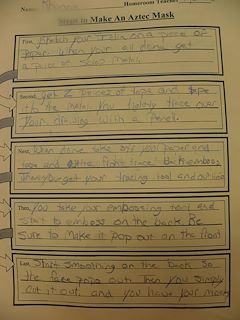 Name Homeroom Teacher
Steps to Make An Aztec Mask
First, Sketch your Idea on a piece of
paper. When your all done get
a piece of metal.
Second, get 2 pieces of tape and tape
it to the metal. thu lightly trace over
your drawing with a pencil.
Next, When done take off your paper and
tape and
Then you get your tracing tool and outline
Then, You take your embossing tool and
start to emboss on the back. Be
sure to make it pop out on the front
Last, Start smoothing on the back so
the face pops out. Then you simply
cut it out. and you have your mask